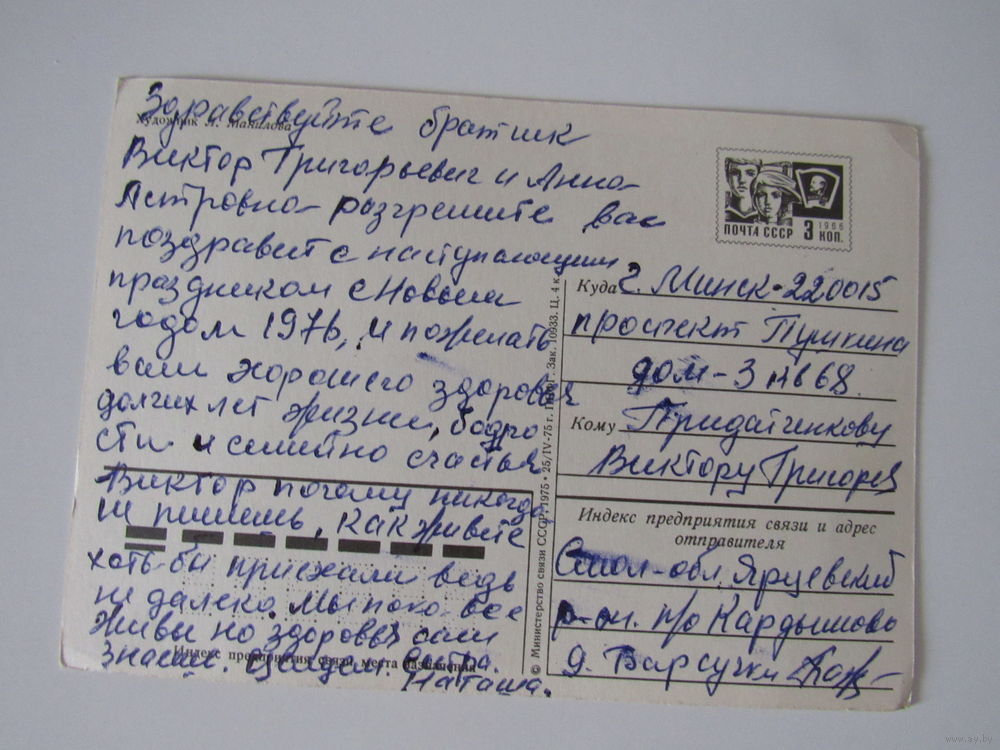 Здравствуйте братик
Художник Л. Манилова
Виктор Григорьевич и Анна
Петровна разгрешите вас
поздравит с наступающим
праздником с Новым
годом 1976, и пожелать
вам хорошего здоровья
долгих лет жизни, бодро
сти и семейно счастья
Виктор почему никогда
не пишешь, как живете
хоть бы приехали ведь
не далеко. Мы пока все
живы но здоровья сам
знаеш.
Наташа.
Индекс предприятия связи места назначения
© Министерство связи СССР, 1975 • 25/IV-75 г. Зак. 10933. Ц. 4 к.
ПОЧТА СССР 3 КОП. 1966
Куда г. Минск-220015
проспект Пушкина
дом-3 кв 68.
Кому Придатченкову
Виктору Григорев
Индекс предприятия связи и адрес
отправителя
Смол-обл. Ярцевский
р-он. п/о Кардымово
д. Барсучки
www.ay.by